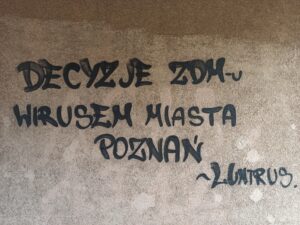 DECYZJE ZDM-u
WIRUSEM MIASTA
POZNAŃ